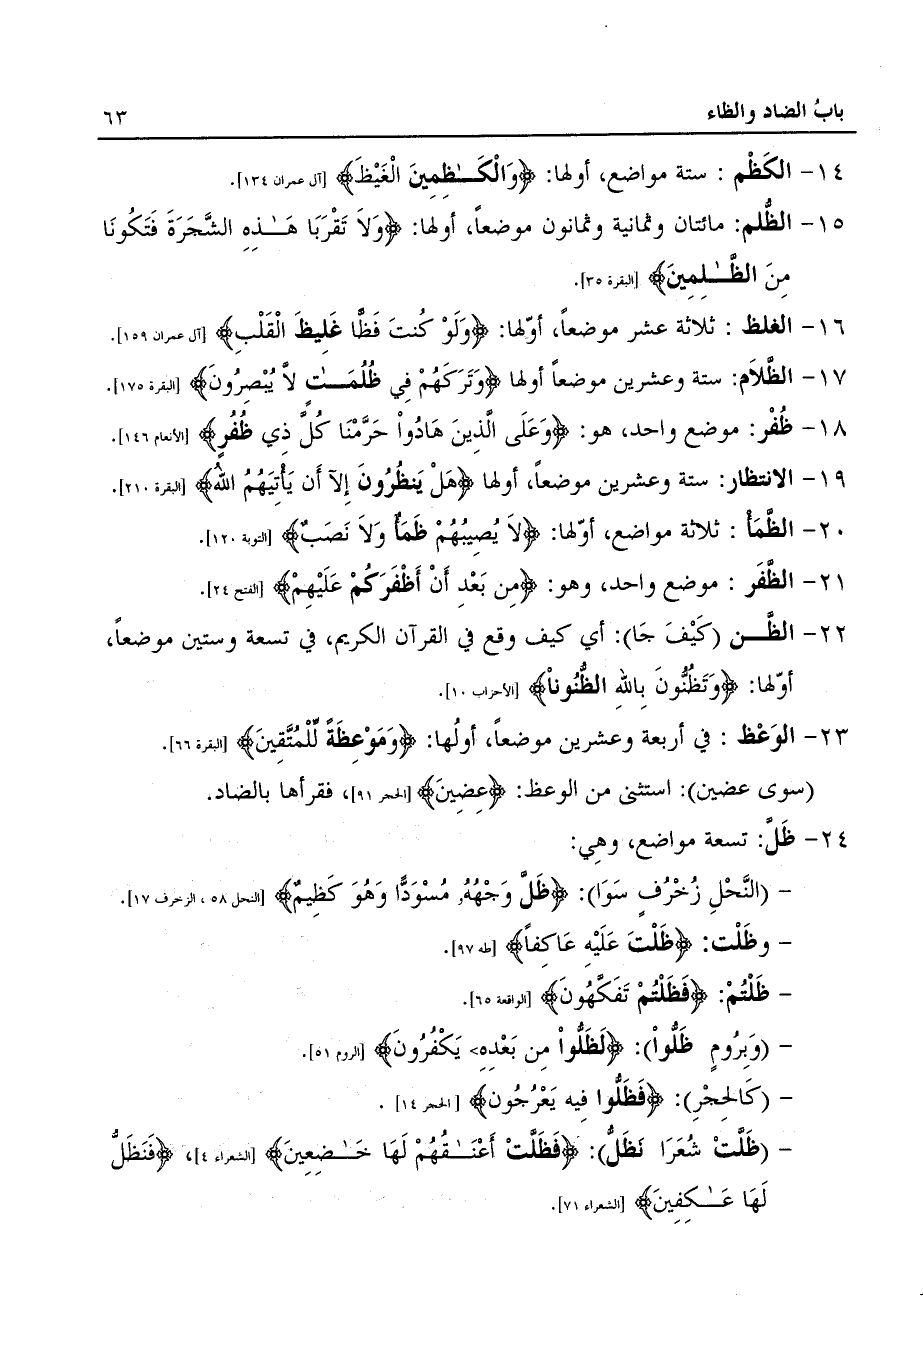 بابُ الضاد والظاء ٦٣
١٤- الكَظْم : ستة مواضع، أولها: ﴿وَالْكَـٰظِمِينَ الْغَيْظَ﴾ [آل عمران ١٣٤].
١٥- الظُّلم: مائتان وثمانية وثمانون موضعاً، أولها: ﴿وَلاَ تَقْرَبَا هَـٰذِهِ الشَّجَرَةَ فَتَكُونَا
مِنَ الظَّـٰلِمِينَ﴾ [البقرة ٣٥].
١٦- الغلظ : ثلاثة عشر موضعاً، أوّلها: ﴿وَلَوْ كُنتَ فَظًّا غَلِيظَ الْقَلْبِ﴾ [آل عمران ١٥٩].
١٧- الظَّلاَم: ستة وعشرين موضعاً أولها ﴿وَتَرَكَهُمْ فِي ظُلُمَـٰتٍ لاَّ يُبْصِرُونَ﴾ [البقرة ١٧٥].
١٨- ظُفْر: موضع واحد، هو: ﴿وَعَلَى الَّذِينَ هَادُواْ حَرَّمْنَا كُلَّ ذِي ظُفُرٍ﴾ [الأنعام ١٤٦].
١٩- الانتظار: ستة وعشرين موضعاً، أولها ﴿هَلْ يَنظُرُونَ إِلاَّ أَن يَأْتِيَهُمُ اللهُ﴾ [البقرة ٢١٠].
٢٠- الظَّمَأْ : ثلاثة مواضع، أوّلها: ﴿لاَ يُصِيبُهُمْ ظَمَأٌ وَلاَ نَصَبٌ﴾ [التوبة ١٢٠].
٢١- الظَّفَر : موضع واحد، وهو: ﴿مِن بَعْدِ أَنْ أَظْفَرَكُمْ عَلَيْهِمْ﴾ [الفتح ٢٤].
٢٢- الظَّـن (كَيْفَ جَا): أي كيف وقع في القرآن الكريم، في تسعة وستين موضعاً،
أوّلها: ﴿وَتَظُنُّونَ بِاللهِ الظُّنُوناْ﴾ [الأحزاب ١٠].
٢٣- الوَعْظ : في أربعة وعشرين موضعاً، أولُها: ﴿وَمَوْعِظَةً لِّلْمُتَّقِينَ﴾ [البقرة ٦٦].
(سوى عضين): استثنى من الوعظ: ﴿عِضِينَ﴾ [الحجر ٩١]، فقرأها بالضاد.
٢٤- ظَلَّ: تسعة مواضع، وهي:
- (النَّحْلِ زُخْرُفٍ سَوَا): ﴿ظَلَّ وَجْهُهُ, مُسْوَدًّا وَهُوَ كَظِيمٌ﴾ [النحل ٥٨، الزخرف ١٧].
- وظَلْت: ﴿ظَلْتَ عَلَيْهِ عَاكِفاً﴾ [طه ٩٧].
- ظَلْتُمْ: ﴿فَظَلْتُمْ تَفَكَّهُونَ﴾ [الواقعة ٦٥].
- (وَبِرُومٍ ظَلُّواْ): ﴿لَظَلُّواْ مِن بَعْدِهِ> يَكْفُرُونَ﴾ [الروم ٥١].
- (كَالحِجْرِ): ﴿فَظَلُّوا فِيهِ يَعْرُجُونَ﴾ [الحجر ١٤] .
- (ظَلَّتْ شُعَرَا نَظَلُّ): ﴿فَظَلَّتْ أَعْنَـٰقُهُمْ لَهَا خَـٰضِعِينَ﴾ [الشعراء ٤]، ﴿فَنَظَلُّ
لَهَا عَـٰكِفِينَ﴾ [الشعراء ٧١].